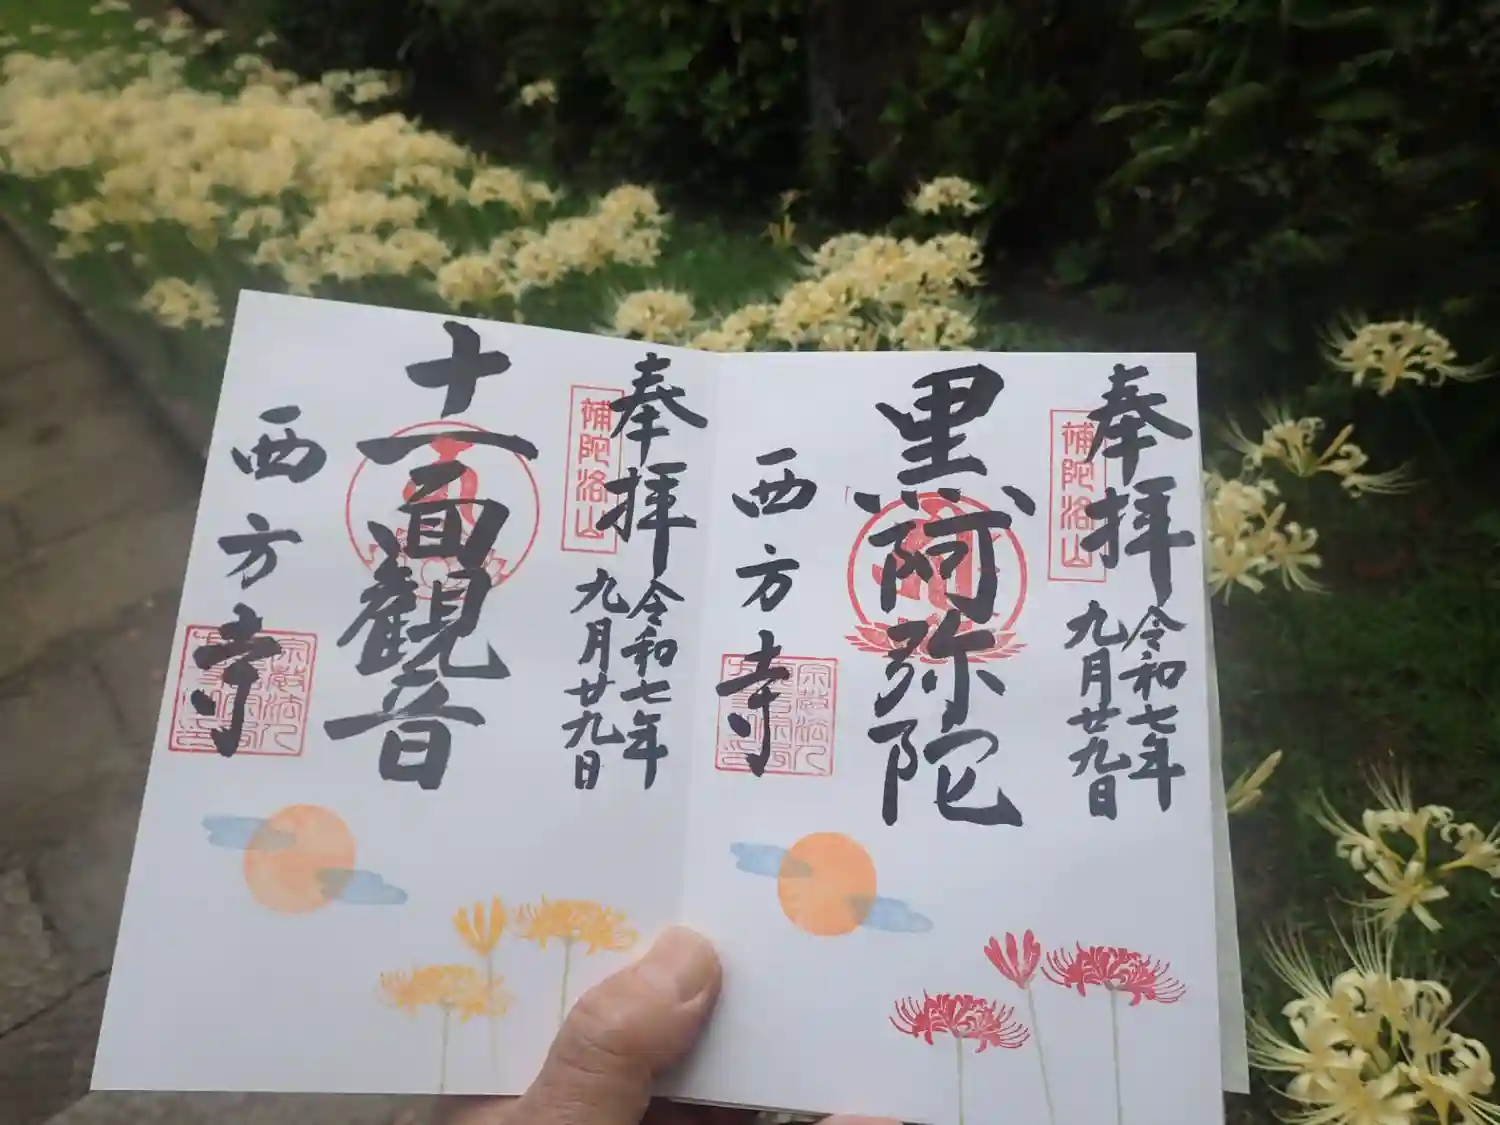 奉拝
補陀洛山
令和七年
九月廿九日
黒阿弥陀
西方寺
奉拝
補陀洛山
令和七年
九月廿九日
十一面観音
西方寺